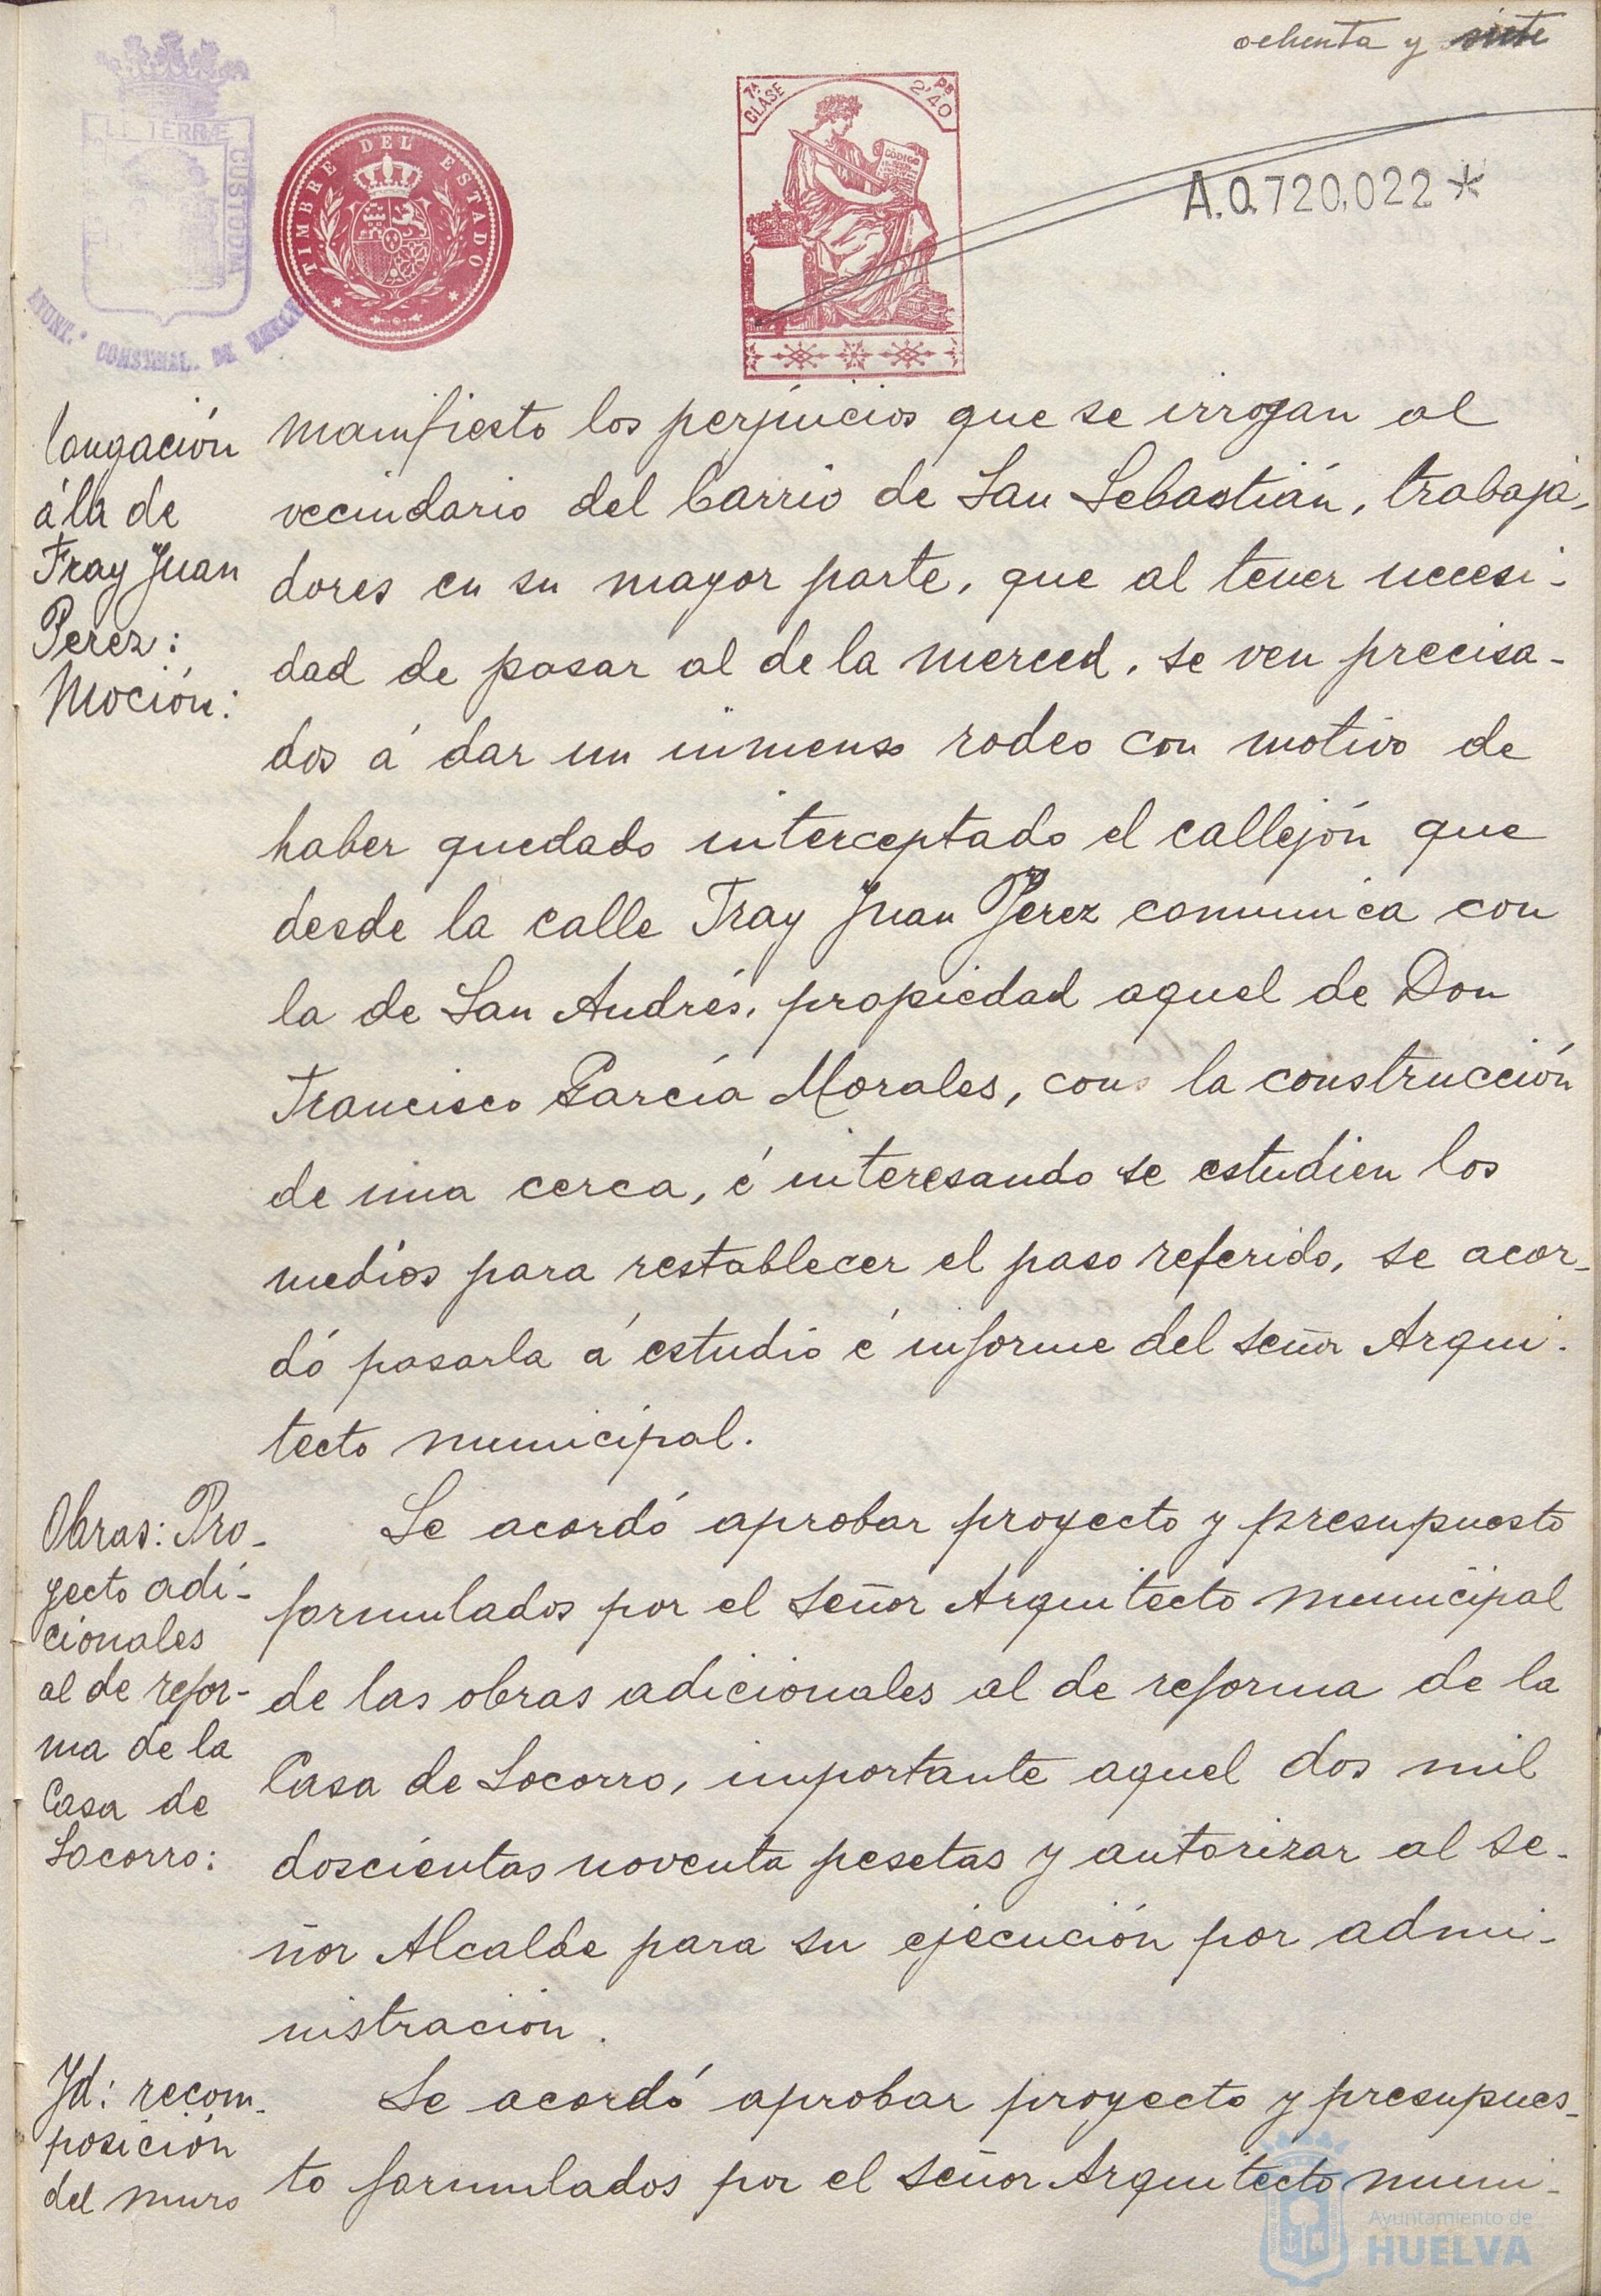 ochenta y siete
TERRÆ
CUSTODIA
AYUNT.º CONSTNAL. DE HUELVA
TIMBRE DEL ESTADO
7ª CLASE
2'40 Ps
CÓDIGO
A.0.720,022*
longación
á la de
Fray Juan
Perez:
Moción:
manifiesto los perjuicios que se irrogan al
vecindario del barrio de San Sebastián, trabaja-
dores en su mayor parte, que al tener necesi-
dad de pasar al de la merced, se ven precisa-
dos á dar un inmenso rodeo con motivo de
haber quedado interceptado el callejón que
desde la calle Fray Juan Perez comunica con
la de San Andrés, propiedad aquel de Don
Francisco García Morales, con la construcción
de una cerca, é interesando se estudien los
medios para restablecer el paso referido, se acor-
dó pasarla á estudio é informe del señor Arqui-
tecto municipal.
Obras: Pro-
yecto adi-
cionales
al de refor-
ma de la
Casa de
Socorro:
Se acordó aprobar proyecto y presupuesto
formulados por el señor Arquitecto municipal
de las obras adicionales al de reforma de la
Casa de Socorro, importante aquel dos mil
doscientas noventa pesetas y autorizar al se-
ñor Alcalde para su ejecución por admi-
nistración.
Yd: recom-
posición
del muro
Se acordó aprobar proyecto y presupues-
to formulados por el señor Arquitecto muni-
Ayuntamiento de
HUELVA